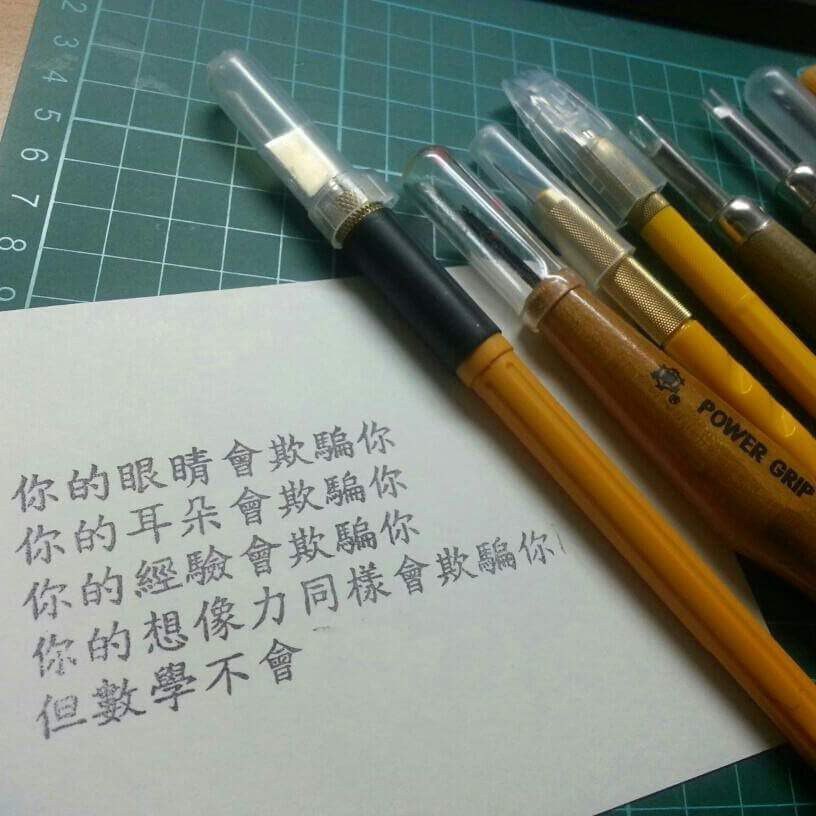 2
3
4
5
6
7
8
9
POWER GRIP
你的眼睛會欺騙你
你的耳朵會欺騙你
你的經驗會欺騙你
你的想像力同樣會欺騙你
但數學不會